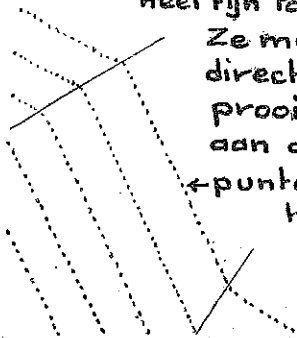 heel fijn
Ze m
direct
prooi
aan d
punt
h